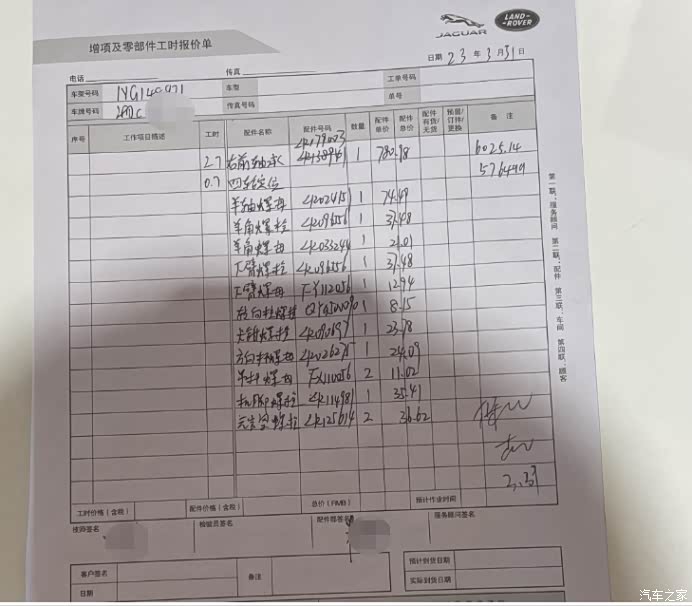 JAGUAR
LAND-
ROVER
增项及零部件工时报价单
日期 23 年 3 月 31 日
电话 传真
车架号码 车型 工单号码
车牌号码 传真号码 单号
序号 工作项目描述 工时 配件名称 配件号码 数量 配件单价 配件总价 配件有货/无货 预留/订件/更换 备 注
LR179003
2.7 右前轴承 1 780.98 6025.14
0.7 四轮定位 5764.99
羊轴螺母 LR024151 1 74.49
羊角螺栓 LR096556 1 31.48
羊角螺母 LR033244 1 21.01
下臂螺栓 LR096556 1 31.48
下臂螺母 FY112056 1 12.94
转向拉螺母 1 8.15
螺栓 1 23.78
螺母 LR026275 1 24.09
螺母 FX110056 2 11.02
机脚螺栓 LR114981 1 35.41
元宝梁螺栓 LR125614 2 36.62
3.31
工时价格(含税) 配件价格(含税) 总价(RMB) 预计作业时间
技师签名 检验员签名 配件部签名 服务顾问签名
客户签名 备注 预计到货日期
日期 实际到货日期
第一联:服务顾问 第二联:配件 第三联:车间 第四联:顾客
汽车之家